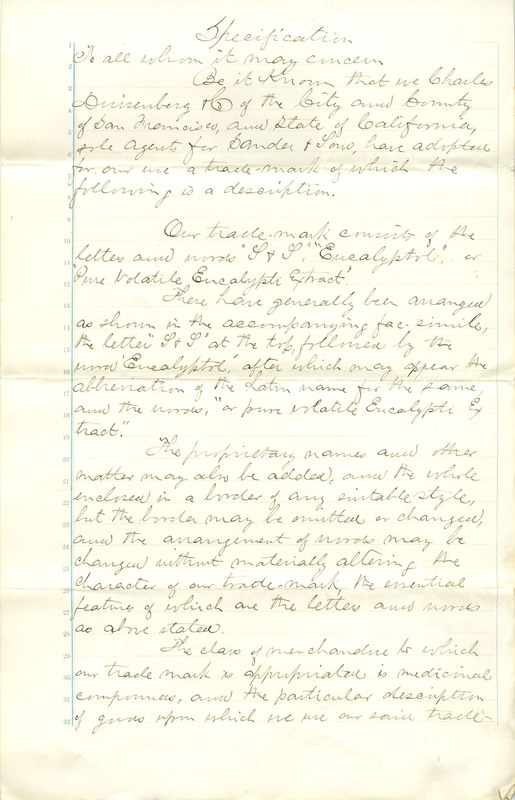 Specification
To all whom it may concern
Be it Known that we Charles
Duisenberg & Co of the City and County
of San Francisco, and State of California,
sole Agent for Sander & Sons, have adopted
for our use a trade-mark of which the
following is a description.
Our trade-mark consists of the
letters and words "S & S", "Eucalyptol", or
"Pure Volatile Eucalypti Extract".
These have generally been arranged
as shown in the accompanying fac-simile,
the letters "S & S" at the top, followed by the
word "Eucalyptol", after which may appear the
abbreviation of the Latin name for the same,
and the words, "or pure volatile Eucalypti Ex
tract".
The proprietary names and other
matter may also be added, and the whole
enclosed in a border of any suitable style,
but the border may be omitted or changed,
and the arrangement of words may be
changed without materially altering the
character of our trade-mark, the essential
features of which are the letters and words
as above stated.
The class of merchandise to which
our trade mark is appropriated is medicinal
compounds, and the particular description
of goods upon which we use our said trade-